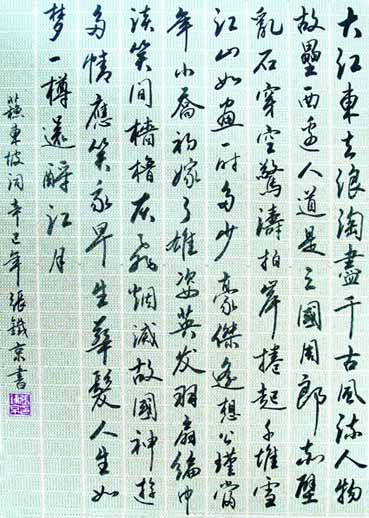 大江東去浪淘盡千古風流人物
故壘西邊人道是三國周郎赤壁
亂石穿空驚濤拍岸捲起千堆雪
江山如畫一時多少豪傑遙想公瑾當
年小喬初嫁了雄姿英发羽扇綸巾
談笑間檣櫓灰飛烟滅故國神遊
多情應笑我早生華髮人生如
梦一樽還酹江月
蘇東坡詞辛巳年張鐵京書